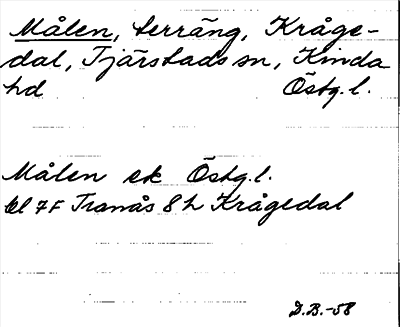 Målen, terräng, Kråge-
dal, Tjärstads sn, Kinda
hd Östg.l.
Målen ek Östg.l.
bl 7F Tranås 8 h Krågedal
D.B.-58